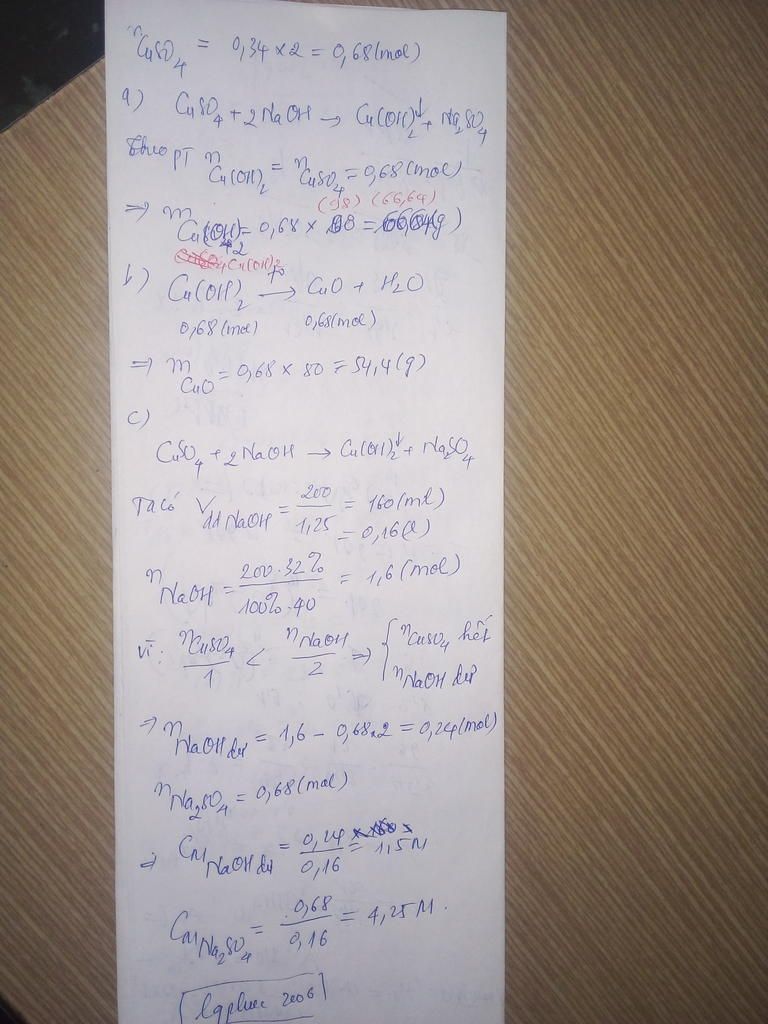 nCuSO4 = 0,34 x 2 = 0,68 (mol)
a) CuSO4 + 2NaOH → Cu(OH)2↓ + Na2SO4
theo PT nCu(OH)2 = nCuSO4 = 0,68 (mol)
(98) (66,64)
=> mCu(OH)2 = 0,68 x 98 = 66,64 (g)
Cu(OH)2
b) Cu(OH)2 →t° CuO + H2O
0,68 (mol) 0,68 (mol)
=> mCuO = 0,68 x 80 = 54,4 (g)
c)
CuSO4 + 2NaOH → Cu(OH)2↓ + Na2SO4
Ta có VddNaOH = 200/1,25 = 160 (ml)
= 0,16 (l)
nNaOH = 200.32%/100%.40 = 1,6 (mol)
Vì: nCuSO4/1 < nNaOH/2 => { nCuSO4 hết
nNaOH dư
=> nNaOH dư = 1,6 - 0,68x2 = 0,24 (mol)
nNa2SO4 = 0,68 (mol)
=> CM NaOH dư = 0,24/0,16 = 1,5M
CM Na2SO4 = 0,68/0,16 = 4,25M.
2006